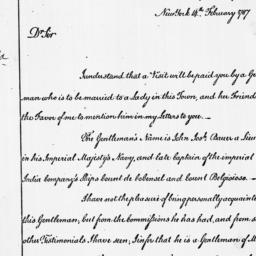 New York 14th February 1787
Dr Sir
I understand that a Visit will be paid you by a Ge
man who is to be married to a Lady in this Town, and her Friends
the Favor of me to mention him in my Letters to you. _
The Gentleman's Name is John Josh. Bauer a Lieu
in his Imperial Majesty's Navy, and late Captain of the imperial
India Company's Ships Count de Cobensel and Count Belgioioso. _
I have not the pleasure of being personally acquainte
this Gentleman, but from the commissions he has had, and from s
other Testimonials I have seen, I infer that he is a Gentleman of M